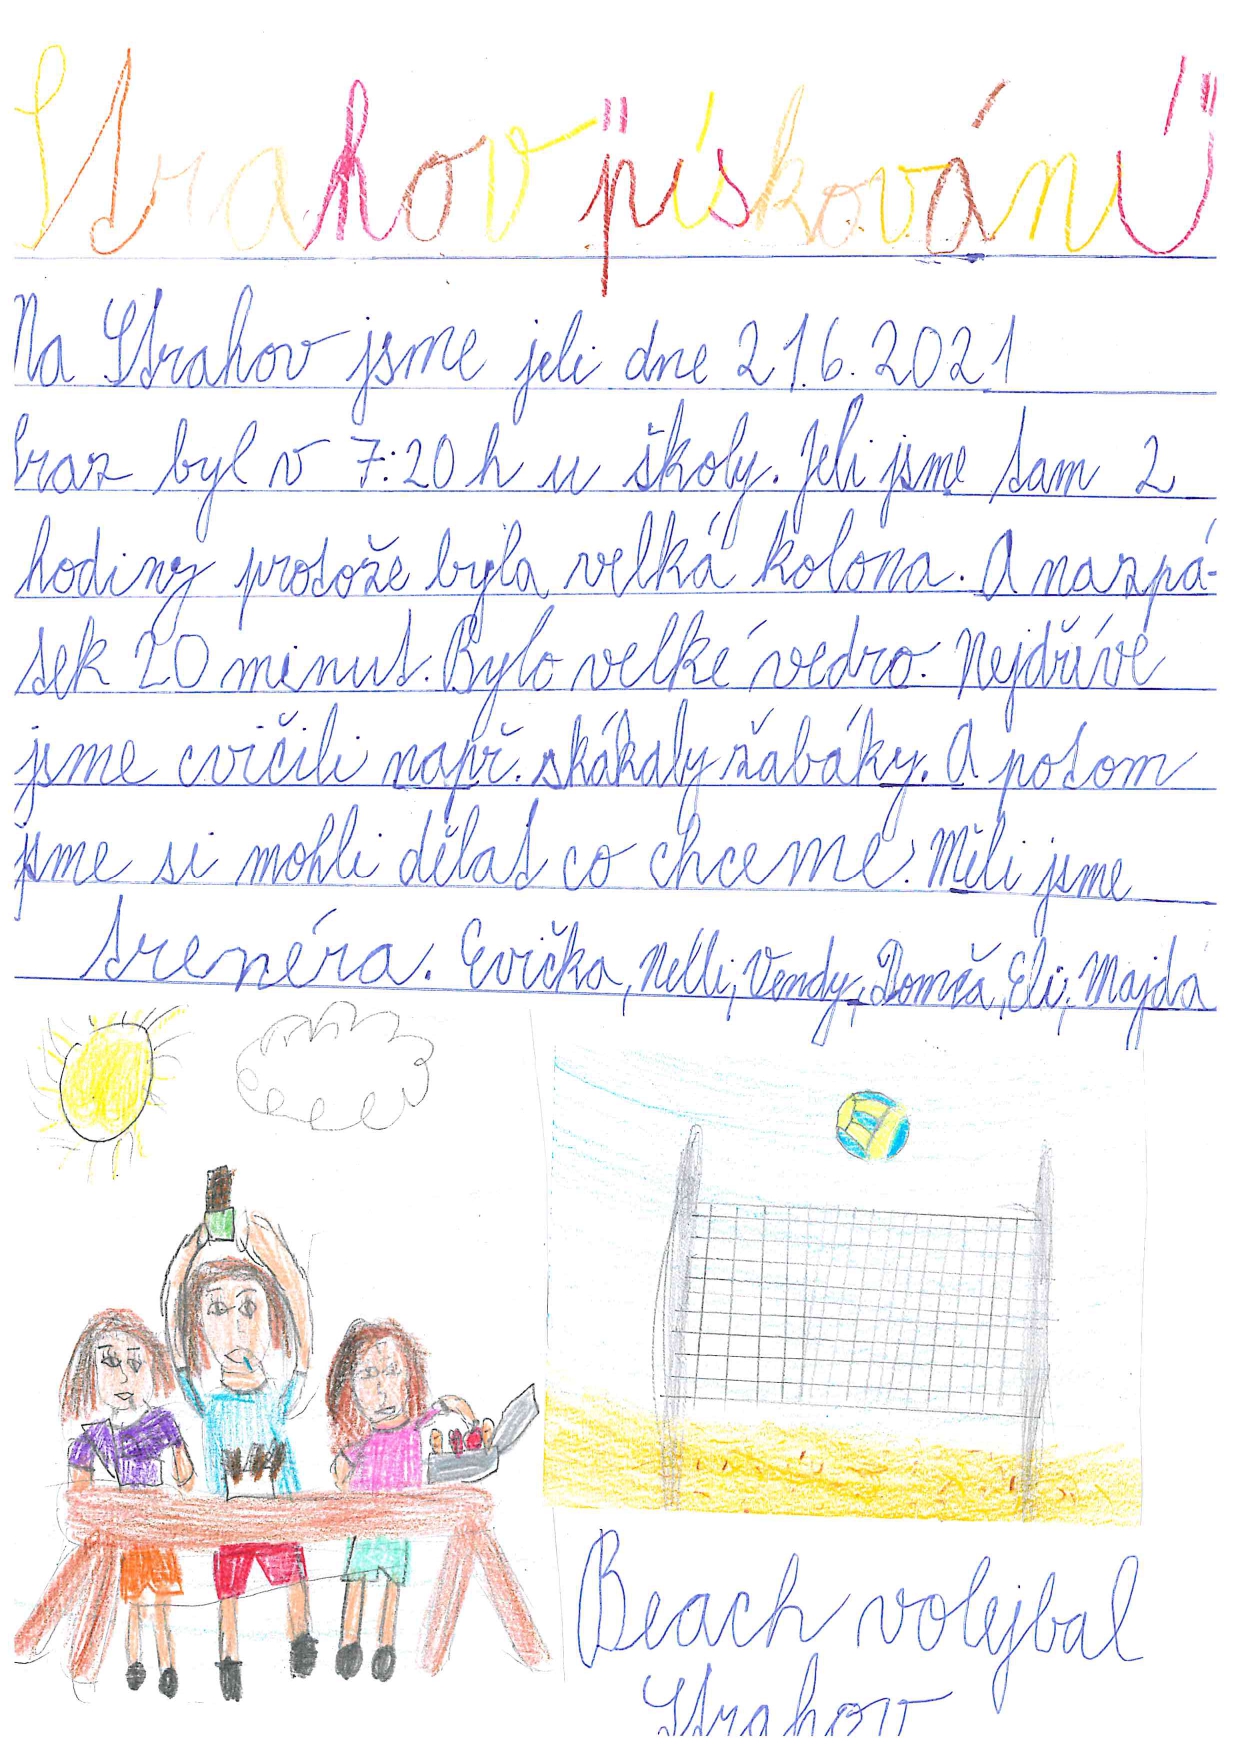 Strahov "pískování"
Na Strahov jsme jeli dne 21.6.2021
sraz byl v 7:20 h u školy. Jeli jsme tam 2
hodiny protože byla velká kolona. A nazpá-
tek 20 minut. Bylo velké vedro. Nejdříve
jsme cvičili např. skákaly žabáky. A potom
jsme si mohli dělat co chceme. Měli jsme
trenéra. Evička, Nelli, Vendy, Domča, Eli, Majda
Beach volejbal
Strahov